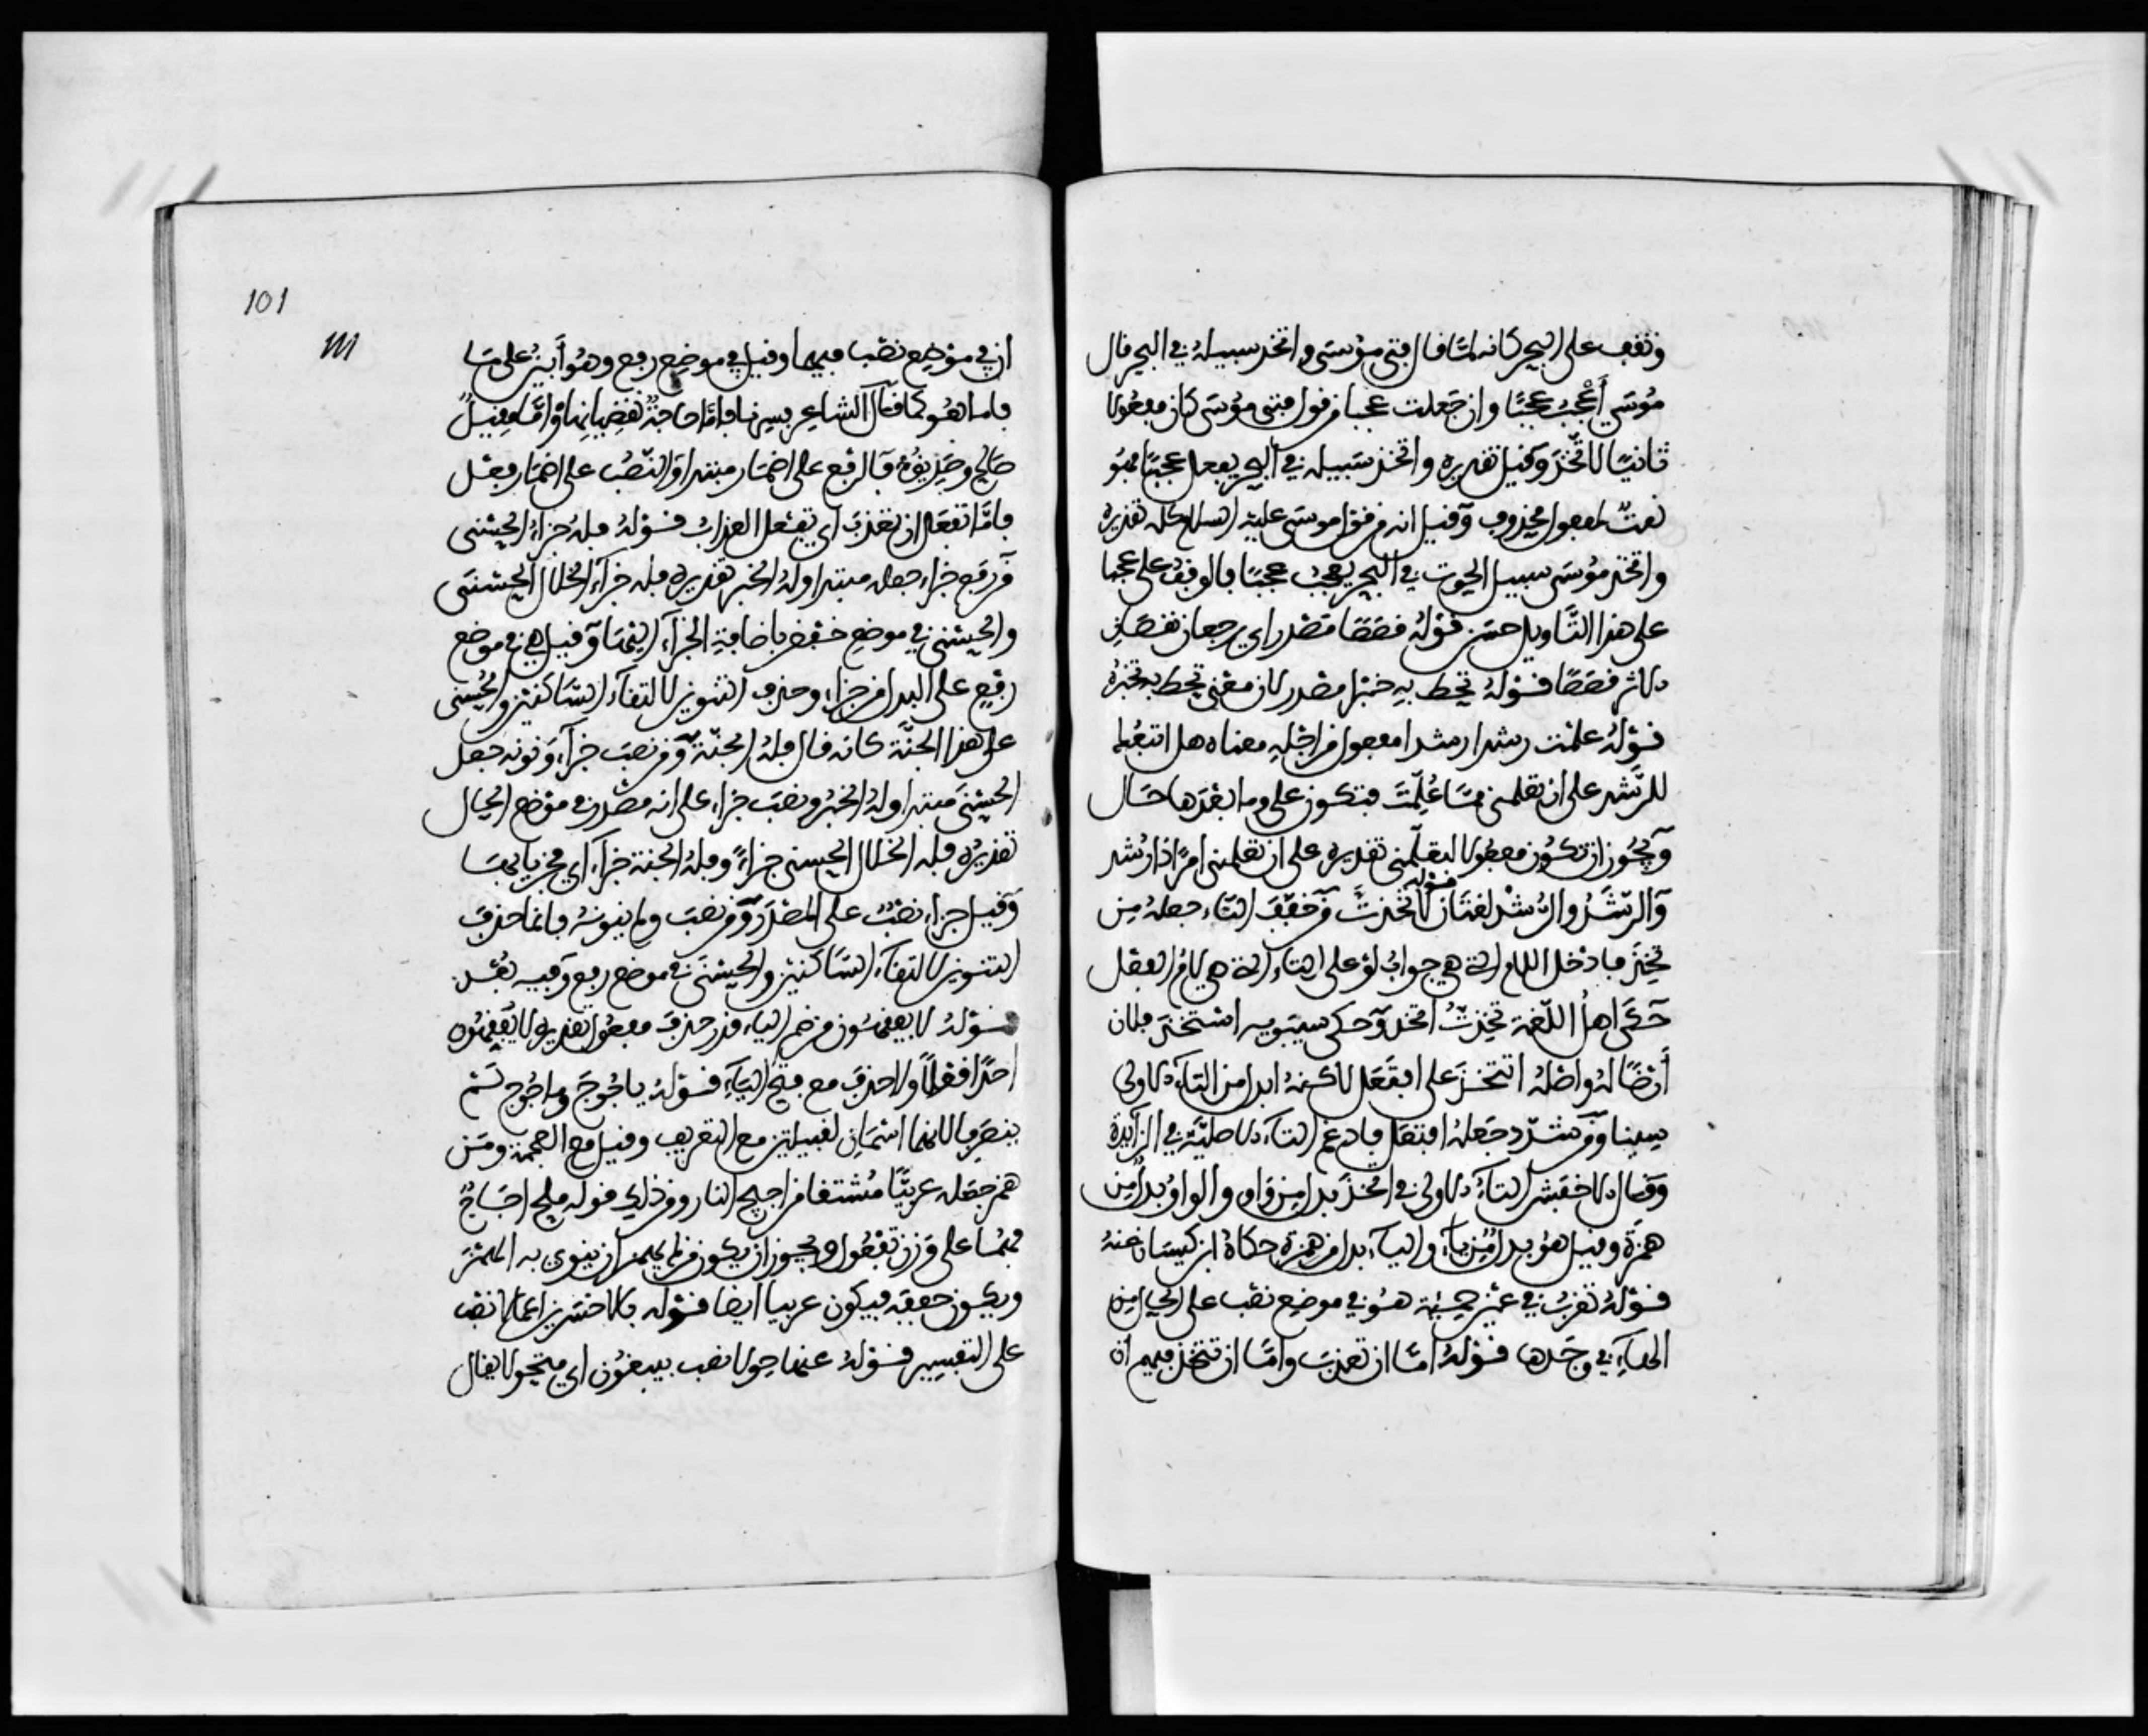 وتقف على البحر كانه لما قال فتى موسى واتخذ سبيله في البحر قال
موسى أعجب عجبا وان جعلت عجبا من قول فتى موسى كان مفعولا
ثانيا لاتخذ وقيل تقديره واتخذ سبيله في البحر يفعل عجبا فهو
نعت لمفعول محذوف وقيل انه من قول موسى عليه السلام كله تقديره
واتخذ موسى سبيل الحوت في البحر يعجب عجبا فالوقف على عجبا
على هذا التاويل حسن قوله قصصا مصدر اي رجعا يقصان
الاثر قصصا قوله تحط به خبرا مصدر لان معنى تحط به تخبره
قوله علمت رشدا رشدا مفعول من اجله معناه هل اتبعك
للرشد على ان تعلمني مما علمت فتكون على وما بعدها حال
ويجوز ان تكون مفعولا لتعلمني تقديره على ان تعلمني امرا ذا رشد
والرشد والرشد لغتان قوله لاتخذت من خفف التاء جعله من
تخذ فادخل اللام التي هي جواب لو على التاء التي هي فاء الفعل
حكى اهل اللغة تخذت اتخذ وحكى سيبويه استخذ فلان
أرضا له واصله اتتخذ على افتعل لاكنه ابدل من التاء الاولى
سينا ومن شدد جعله افتعل فادغم التاء الاصلية في الزايدة
وقال الاخفش التاء الاولى في اتخذ بدل من واو والواو بدل من
همزة وقيل هو بدل من ياء والياء بدل من همزة حكاه ابن كيسان عنه
قوله تغرب في عين حمئة هو في موضع نصب على الحال من
الهاء في وجدها قوله اما ان تعذب واما ان تتخذ فيهم ان
101
111
ان في موضع نصب فيهما وقيل في موضع رفع وهو أبين على
فاما هو كما قال الشاعر فسيرا فاما حاجة تقضيانها واما مقيل
صالح وصديق فالرفع على اضمار مبتدا والنصب على اضمار فعل
فاما تفعل ان تعذب اي تفعل العذاب قوله فله جزاء الحسنى
من رفع جزاء جعله مبتدا وله الخبر تقديره فله جزاء الخلال الحسنى
والحسنى في موضع خفض باضافة الجزاء اليها وقيل هي في موضع
رفع على البدل من جزاء وحذف التنوين لالتقاء الساكنين والحسنى
على هذا الجنة كانه قال فله الجنة ومن نصب جزاء ونونه جعل
الحسنى مبتدا وله الخبر ونصب جزاء على انه مصدر في موضع الحال
تقديره فله الخلال الحسنى جزاء وفله الجنة جزاء اي مجزيا بها
وقيل جزاء نصب على المصدر ومن نصب ولم ينونه فانما حذف
التنوين لالتقاء الساكنين والحسنى في موضع رفع وفيه بعد
قوله لا يفقهون من ضم الياء قدر حذف مفعول تقديره لا يفقهون
احدا قولا ولا حذف مع فتح الياء قوله ياجوج وماجوج لم
ينصرفا لانهما اسمان لقبيلتين مع التعريف وقيل مع العجمة ومن
همز جعله عربيا مشتقا من اجيج النار ومن ذلك قوله ملح اجاج
فهما على وزن يفعول ويجوز ان يكون من لم يهمز ان ينوي به الهمز
ويكون خففه فيكون عربيا ايضا قوله بالاخسرين اعمالا نصب
على التفسير قوله عنها حولا نصب بيبغون اي متحولا يقال